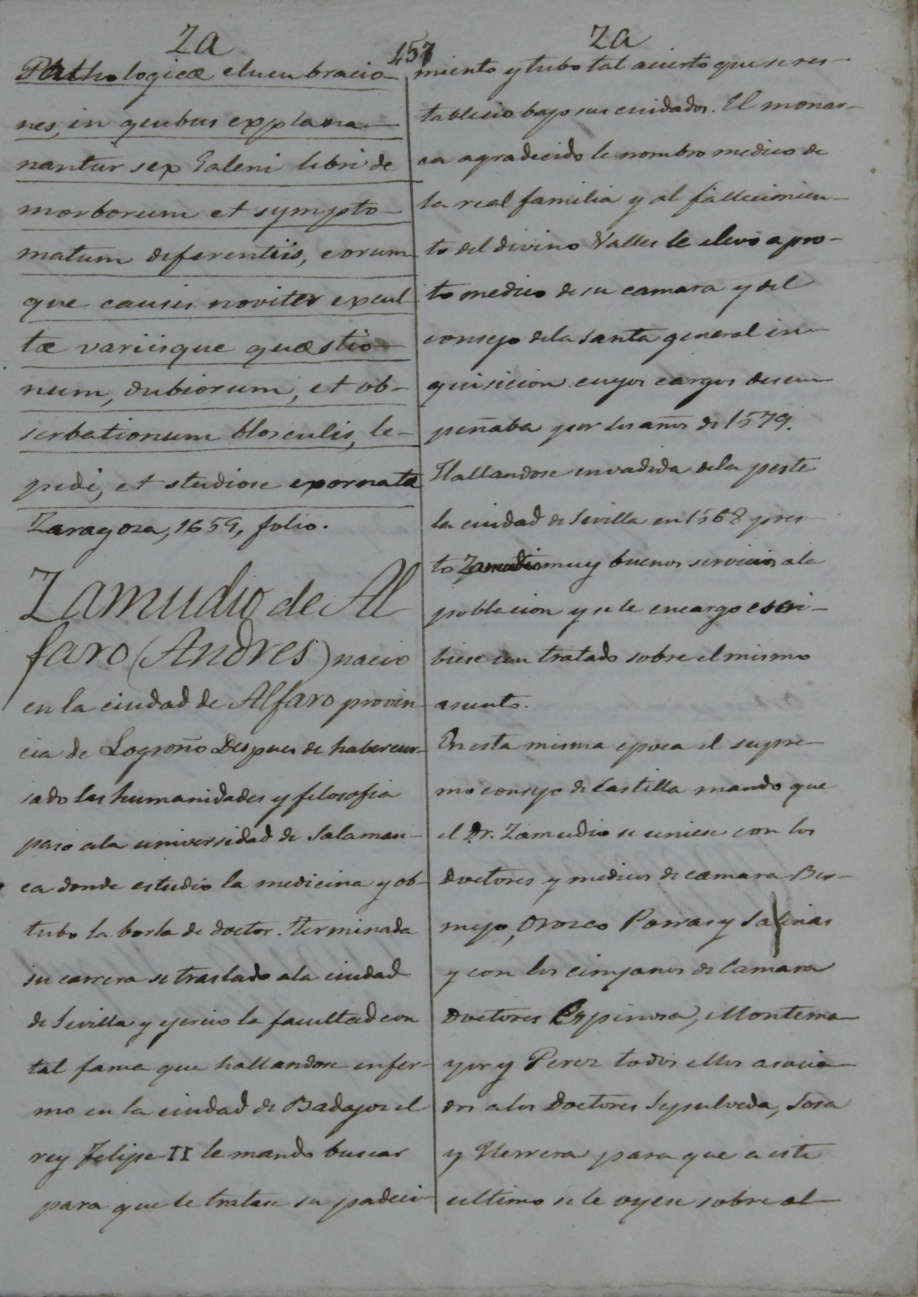 Za
Za
457
Pathologicæ elucubracio-
nes, in quibus explana-
nantur sex Galeni libri de
morborum et sympto-
matum diferentiis, eorum
que causis noviter excul
tæ variisque quæstio-
num, dubiorum, et ob-
serbationum blosculis, le-
pidi, et studiose exornata
Zaragoza, 1659, folio.
Zamudio de Al
faro (Andres) nacio
en la ciudad de Alfaro provin-
cia de Logroño Despues de habercur-
sado las humanidades y filosofia
paso ala universidad de Salaman-
ca donde estudio la medicina y ob-
tubo la borla de doctor. Terminada
su carrera se traslado ala ciudad
de Sevilla y ejercio la facultad con
tal fama que hallandose enfer-
mo en la ciudad de Badajoz el
rey Felipe II le mando buscar
para que le tratase su padeci-
miento y tubo tal acierto que se res-
tablecio bajo sus cuidados. El monar-
ca agradecido le nombro medico de
la real familia y al fallecimien-
to del divino Valles le elevo a pro-
to medico de su camara y del
consejo dela santa general in-
quisicion cuyos cargos desem-
peñaba por los años de 1579.
Hallandose invadida dela peste
la ciudad de Sevilla en 1568 pres-
to Zamudio muy buenos servicios ala
poblacion y se le encargo escri-
biese un tratado sobre el mismo
asunto.
En esta misma epoca el supre-
mo consejo de Castilla mando que
el Dr. Zamudio se uniese con los
Doctores y medicos de camara Ber-
mejo, Orozco Porras y Salinas
y con los cirujanos de Camara
Doctores Espinosa, Montema-
yor y Perez todos ellos asocia-
dos alos Doctores Sepulveda, Sosa
y Herrera para que a este
ultimo se le oyese sobre al-